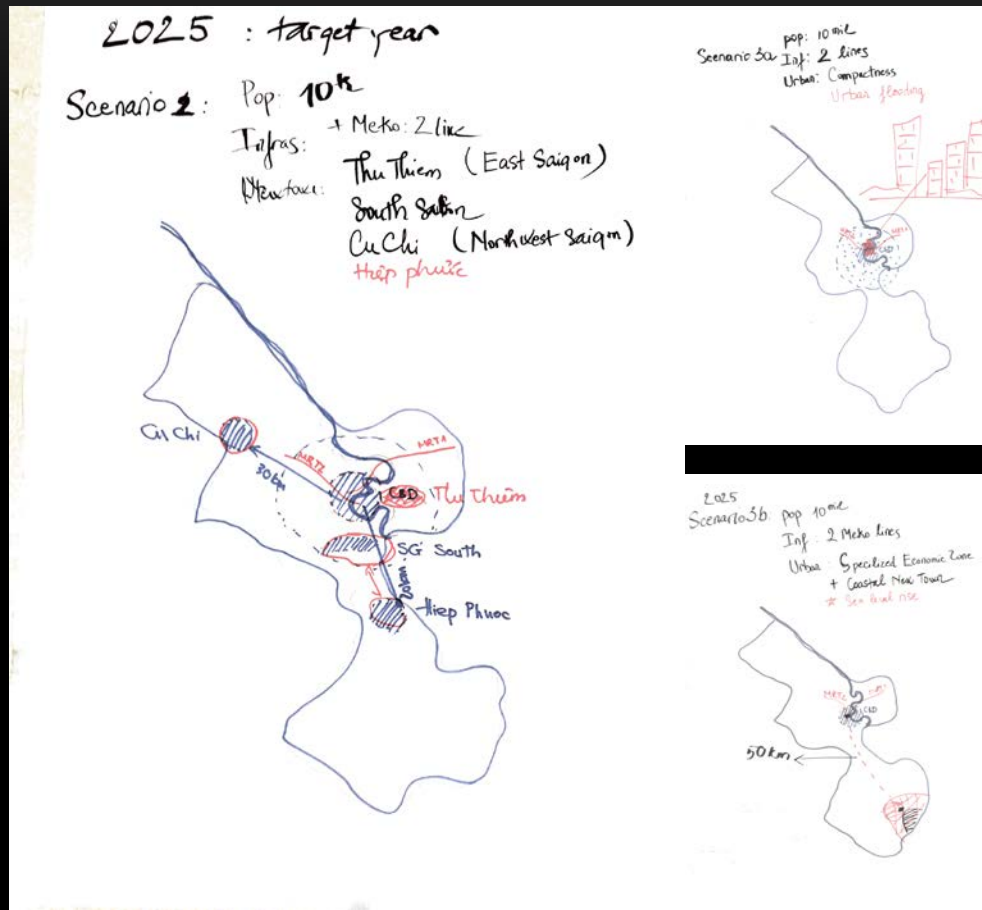 2025 : target year
Scenario 2: Pop: 10k
Infras: + Metro: 2 line
Thu Thiem (East Saigon)
South
Cu Chi (Northwest Saigon)
Hiệp phước
Cu Chi
30km
MRT2
MRT1
CBD
Thu Thiêm
SG South
20km
Hiep Phuoc
Scenario 3a
pop: 10 mil
Inf: 2 lines
Urban: Compactness
Urban flooding
CBD
2025
Scenario3b: pop 10 mil
Inf: 2 Metro lines
Urban: Specilized Economic Zone
+ Coastal New Town
* Sea level rise
MRT2
MRT1
CBD
50km